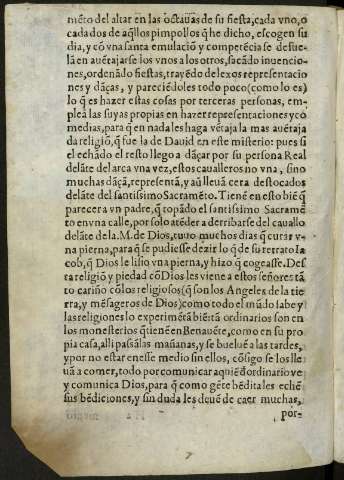 mẽto del altar en las octauas de su fiesta, cada vno, o
cada dos de aq̃llos pimpollos q̃ he dicho, escogen su
dia, y cõ vna santa emulaciõ y competẽcia se desue-
lã en auẽtajarse los vnos a los otros, sacãdo inuencio-
nes, ordenãdo fiestas, trayẽdo de lexos representacio
nes y dãças, y pareciẽdoles todo poco (como lo es)
lo q̃ es hazer estas cosas por terceras personas, em-
pleã las suyas propias en hazer representaciones y co
medias, para q̃ en nada les haga vẽtaja la mas auẽtaja
da religiõ, q̃ fue la de Dauid en este misterio: pues si
el echãdo el resto llego a dãçar por su persona Real
delãte del arca vna vez, estos caualleros no vna, sino
muchas dãçã, representã, y aũ lleuã cera destocados
delãte del santissimo Sacramẽto. Tienẽ en esto biẽ q̃
parecer a vn padre, q̃ topãdo el santissimo Sacramẽ
to en vna calle, por solo atẽder a derribarse del cauallo
delãte de la. M. de Dios, tuuo muchos dias q̃ curar v-
na pierna, para q̃ se pudiesse dezir lo q̃ de su retrato Ia
cob, q̃ Dios le lisio vna pierna, y hizo q̃ cogeasse. Des
ta religiõ y piedad cõ Dios les viene a estos señores tã
to cariño cõ los religiosos (q̃ son los Angeles de la tie
rra, y mẽsageros de Dios) como todo el mũdo sabe y
las religiones lo experimẽtã bien: tã ordinarios son en
los monesterios q̃ tienẽ en Benauẽte, como en su pro
pia casa, alli pasã las mañanas, y se bueluẽ a las tardes,
y por no estar en esse medio sin ellos, cõsigo se los lle
uã a comer, todo por comunicar a quiẽ d̃ ordinario ve
y comunica Dios, para q̃ como gẽte bẽdita les echẽ
sus bẽdiciones, y sin duda les deuẽ de caer muchas,
por-